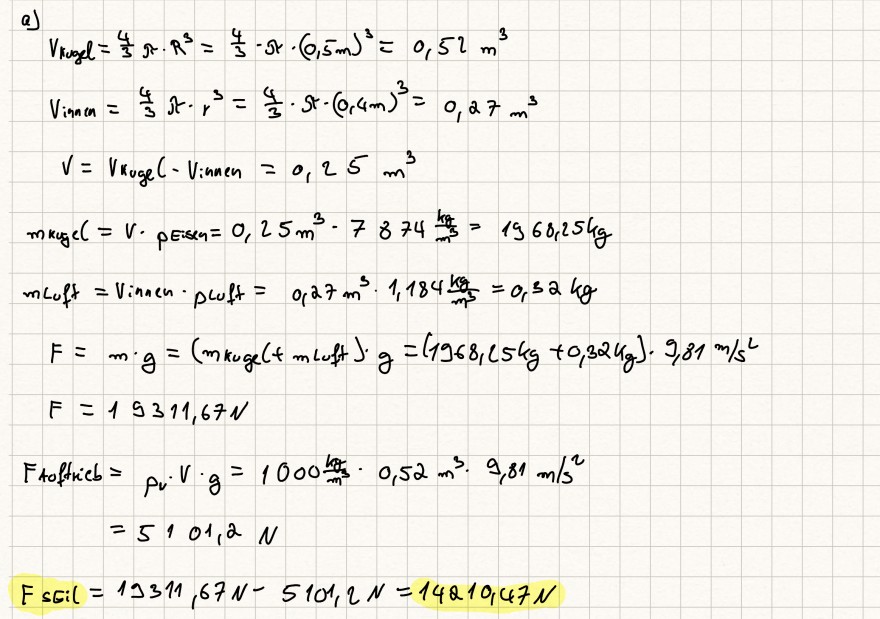 a)
V_Kugel = 4/3 π · R³ = 4/3 · π · (0,5m)³ = 0,52 m³
V_innen = 4/3 π · r³ = 4/3 · π · (0,4m)³ = 0,27 m³
V = V_Kugel - V_innen = 0,25 m³
m_Kugel = V · ρ_Eisen = 0,25m³ · 7874 kg/m³ = 1968,25kg
m_Luft = V_innen · ρ_Luft = 0,27m³ · 1,184 kg/m³ = 0,32 kg
F = m · g = (m_Kugel + m_Luft) · g = (1968,25kg + 0,32kg) · 9,81 m/s²
F = 19311,67N
F_Auftrieb = ρ_w · V · g = 1000 kg/m³ · 0,52 m³ · 9,81 m/s²
= 5101,2 N
F_Seil = 19311,67N - 5101,2N = 14210,47N